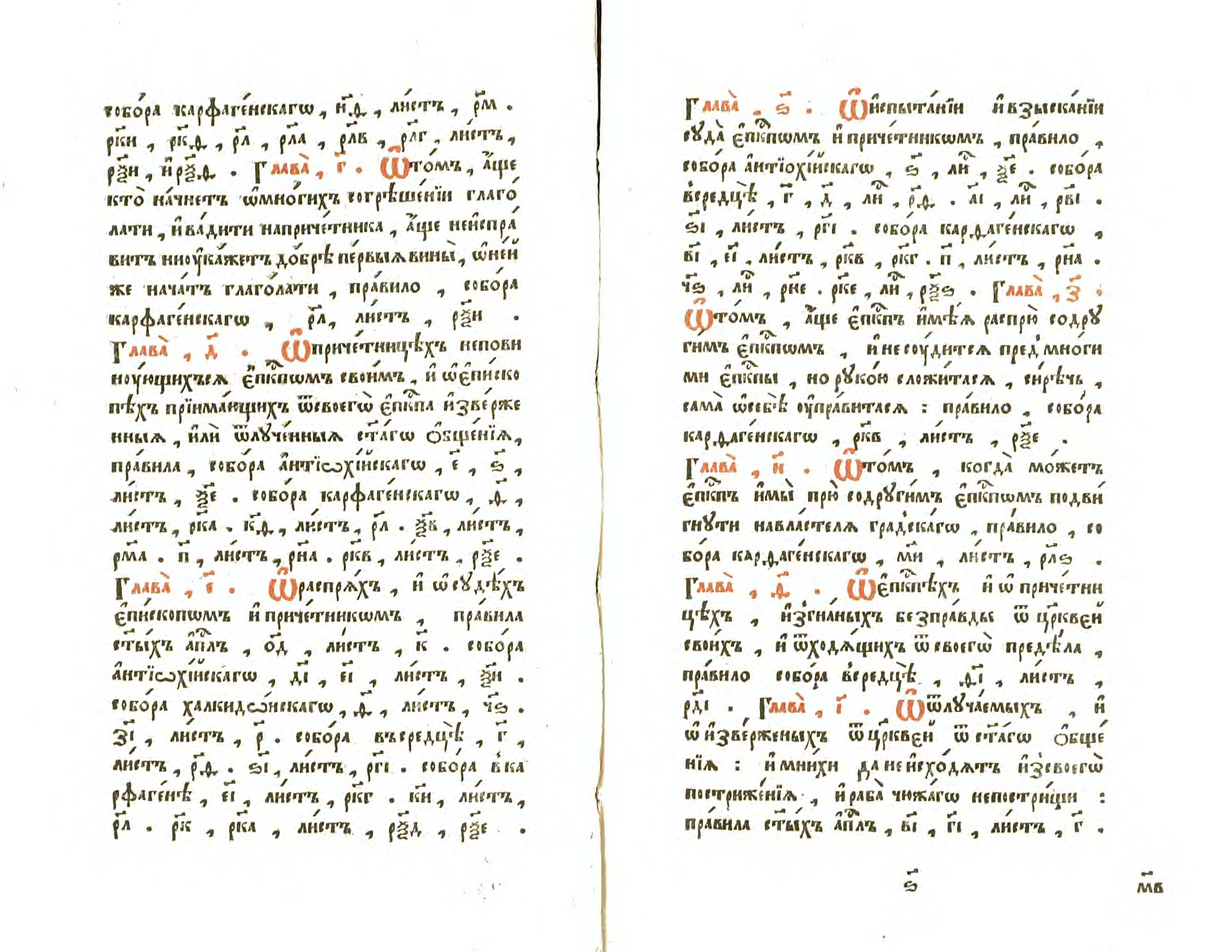 собо́ра карфаге́нскагѡ , н҃ѳ , ли́стъ , р҃м .
р҃кн , р҃кѳ , р҃л , р҃ла , р҃лв , р҃лг , ли́стъ ,
р҃ѯн , и҆ р҃ѯѳ . Глава̀ , г҃ . Ѡ҆то́мъ , а҆́ще
кто̀ на́чнетъ ѡ҆мно́гихъ согрѣше́нїи глаго́
лати , и҆ва́дити напричє́тника , а҆́ще неи҆спра́
витъ ниоу҆ка́жетъ до́брѣ пе́рвыѧ вины̀ , ѡ҆не́й
же нача́тъ глаго́лати , пра́вило , собо́ра
карфаге́нскагѡ , р҃л , ли́стъ , р҃ѯи .
Глава̀ , д҃ . Ѡ҆причє́тницѣхъ непови
ну́ющихъсѧ є҆пⷭ҇кпѡмъ свои̑мъ , и҆ ѡ҆є҆пи́ско
пѣхъ прїима́ющих ѿсвоегѡ̀ є҆пⷭ҇кпа и҆зве́рже
нныѧ , и҆лѝ ѿлуче́нныѧ ст҃а́гѡ ѻ҆бще́нїѧ ,
пра́вила , собо́ра а҆нтїѡхі́йскагѡ , є҃ , ѕ҃ ,
ли́стъ , ѯ҃е . собо́ра карфаге́нскагѡ , ѳ҃ ,
ли́стъ , рка . к҃ѳ , ли́стъ , р҃л . ѯ҃в , ли́стъ ,
р҃ма . п҃ , ли́стъ , р҃на . ркв , ли́стъ , р҃ѯе .
Глава̀ , є҃ . Ѡ҆распрѧ́хъ , и҆ ѡ҆ судѣ́хъ
є҆пи́скопѡмъ и҆ причє́тникѡмъ , пра́вила
ст҃ы́хъ а҆пⷭ҇лъ , о҃д , ли́стъ , к҃ . собо́ра
а҆нтїѡхі́йскагѡ , д҃і , є҃і , ли́стъ , ѯ҃и .
собо́ра халкидѡ́нскагѡ , ѳ҃ , ли́стъ , ч҃ѕ .
з҃і , ли́стъ , р҃ . собо́ра въсредцѣ̀ , г҃ ,
ли́стъ , р҃ѳ . ѕ҃і , ли́стъ , р҃гі . собо́ра в҆ка
рфаге́нѣ , є҃і , ли́стъ , р҃кг . к҃и , ли́стъ ,
р҃л . р҃к , р҃ка , ли́стъ , р҃ѯд , р҃ѯе .
Глава̀ , ѕ҃ . Ѡ҆и҆спыта́нїи и҆взыска́нїи
суда̀ є҆пⷭ҇кпѡмъ и҆ причє́тникѡмъ , пра́вило ,
собо́ра а҆нтїохі́йскагѡ , ѕ҃ , лиⷭ҇ , ѯ҃е . собо́ра
в҆средцѣ̀ , г҃ , д҃ , лиⷭ҇ , р҃ѳ . а҃і , лиⷭ҇ , р҃ві .
ѕ҃і , ли́стъ , р҃гі . собо́ра карѳаге́нскагѡ ,
в҃і , є҃і , ли́стъ , р҃кв , р҃кг . п҃ , ли́стъ , р҃на .
ч҃ѕ , лиⷭ҇ , р҃не . р҃ке , лиⷭ҇ , р҃ѯѕ . Глава̀ , з҃ .
Ѡ҆то́мъ , а҆́ще є҆пⷭ҇кпъ и҆мѣ́ѧ распрю̀ содру
ги́мъ є҆пⷭ҇кпѡмъ , и҆ не сѹ́дитсѧ пред̾ мно́ги
ми є҆пⷭ҇кпы , но руко́ю сложи́тасѧ , си́рѣчь ,
сама̀ ѡ҆себѣ̀ оу҆пра́витасѧ : пра́вило , собо́ра
карѳаге́нскагѡ , р҃кв , ли́стъ , р҃ѯе .
Глава̀ , и҃ . Ѡ҆то́мъ , когда̀ мо́жетъ
є҆пⷭ҇кпъ и҆мы̀ прю̀ содруги́мъ є҆пⷭ҇кпѡмъ подви́
гнути навласте́лѧ гра́дскагѡ , пра́вило , со
бо́ра карѳаге́нскагѡ , м҃и , ли́стъ , р҃лѕ .
Глава̀ , ѳ҃ . Ѡ҆є҆пⷭ҇кпѣхъ и҆ ѡ҆ причє́тни
цѣхъ , и҆згна́ныхъ без̾пра́вды ѿ цр҃кве́й
свои́хъ , и҆ ѿходѧ́щихъ ѿ своегѡ̀ предѣ́ла ,
пра́вило собо́ра в҆средцѣ̀ , ѳ҃і , ли́стъ ,
р҃ді . Глава̀ , і҃ . Ѡ҆ѿлуча́емыхъ , и҆
ѡ҆ и҆зве́рженыхъ ѿ цр҃кве́й ѿ ст҃а́гѡ ѻ҆бще́
нїѧ : и҆ мни́хи да не и҆схо́дѧтъ и҆зсвоегѡ̀
постриже́нїѧ , и҆ раба̀ чю́жагѡ непострищи :
пра́вила ст҃ы́хъ а҆пⷭ҇лъ , в҃і , г҃і , ли́стъ , г҃ .
ѕ҃ м҃в